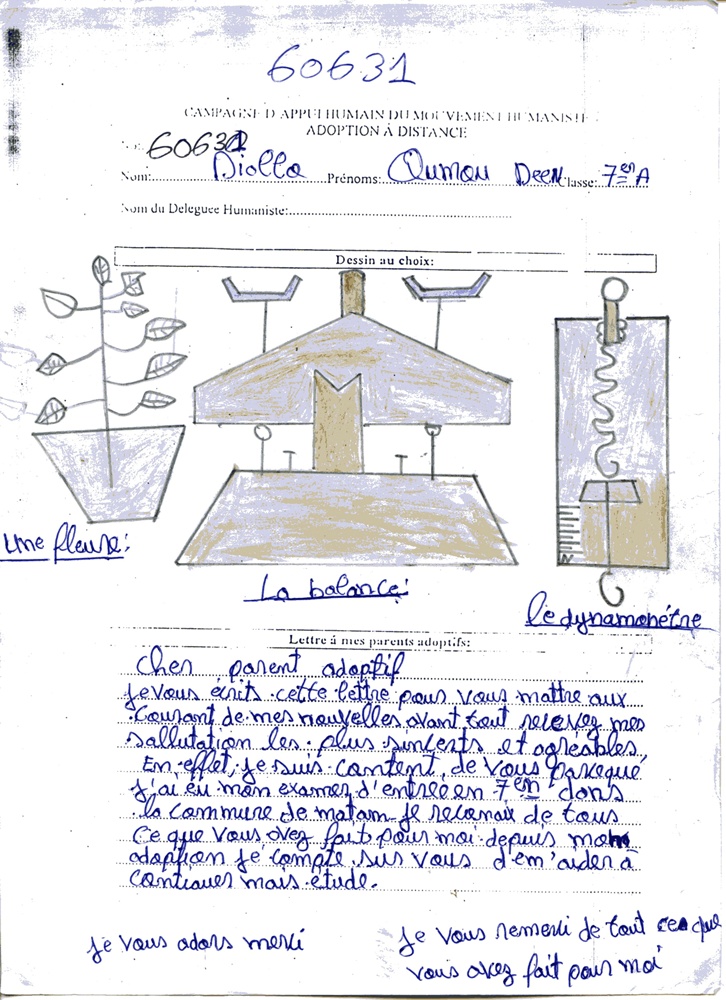 60631
CAMPAGNE D'APPUI HUMAIN DU MOUVEMENT HUMANISTE
ADOPTION À DISTANCE
60631
Nom: Diollo Prénoms: Oumou Deen Classe: 7en A
Nom du Deleguee Humaniste:
Dessin au choix:
Une fleure:
La balance:
le dynamonétre
Lettre à mes parents adoptifs:
Cher parent adoptif
Je vous écrits cette lettre pour vous mattre aux
Courant de mes nouvelles avant tout recevez mes
sallutation les plus sincents et agréables,
En effet, je suis content, de Vous parceque
j'ai eu mon examen d'entrée en 7en dans
la commune de matam je reconair de tous
Ce que Vous avez fait pour moi depuis mom
adaption je compte sur vous d'em'aider à
contiauer mais étude.
je vous adors merci
je vous remerci de tout ce que
vous avez fait pour moi